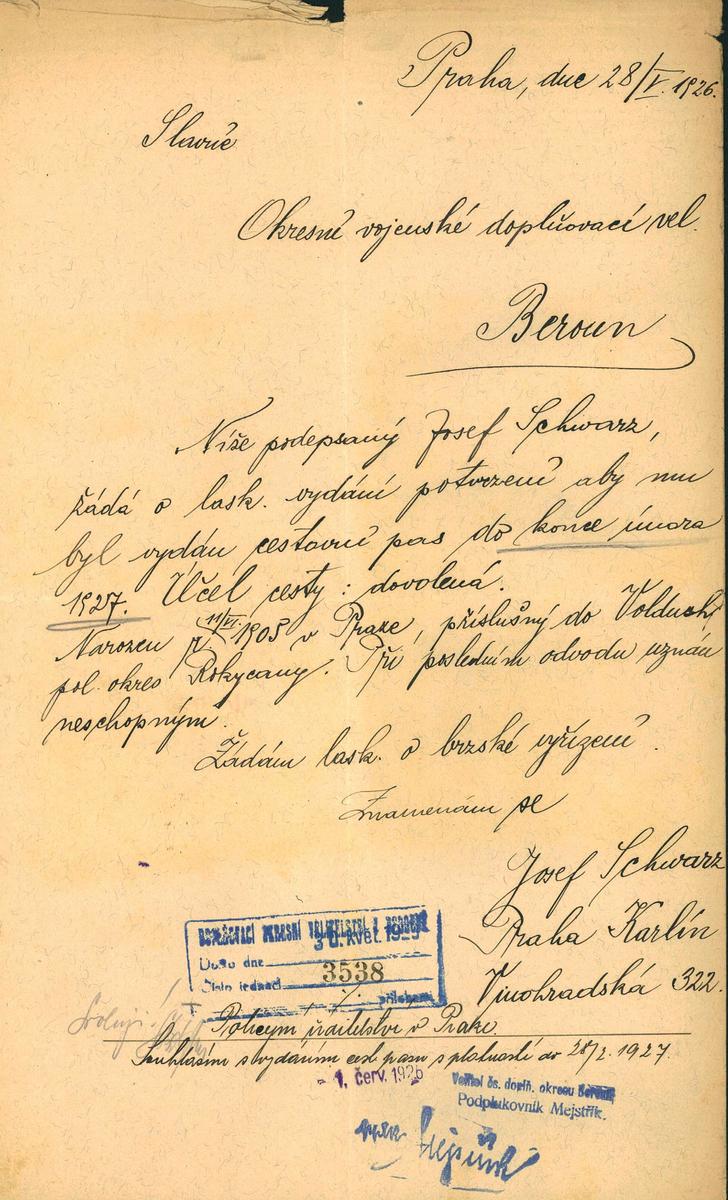 Praha, dne 28/V. 1926.
Slavné
Okresní vojenské doplňovací vel.
Beroun
Níže podepsaný Josef Schwarz,
žádá o lask. vydání potvrzení aby mu
byl vydán cestovní pas do konce února
1927. Účel cesty: dovolená.
Narozen 11/VI. 1905 v Praze, příslušný do Volduch,
pol. okres Rokycany. Při posledním odvodu uznán
neschopným.
Žádám lask. o brzské vyřízení.
Znamenám se
Josef Schwarz
Praha Karlín
Vinohradská 322.
DOPLŇOVACÍ OKRESNÍ VELITELSTVÍ V BEROUNĚ
30. květ. 1926
Došlo dne
Číslo jednací 3538
přílohami
Policejní ředitelství v Praze
Souhlasím s vydáním cest. pasu s platností do 28/2. 1927.
- 1. červ. 1926
Velitel čs. dopln. okresu Beroun,
Podplukovník Mejstřík.